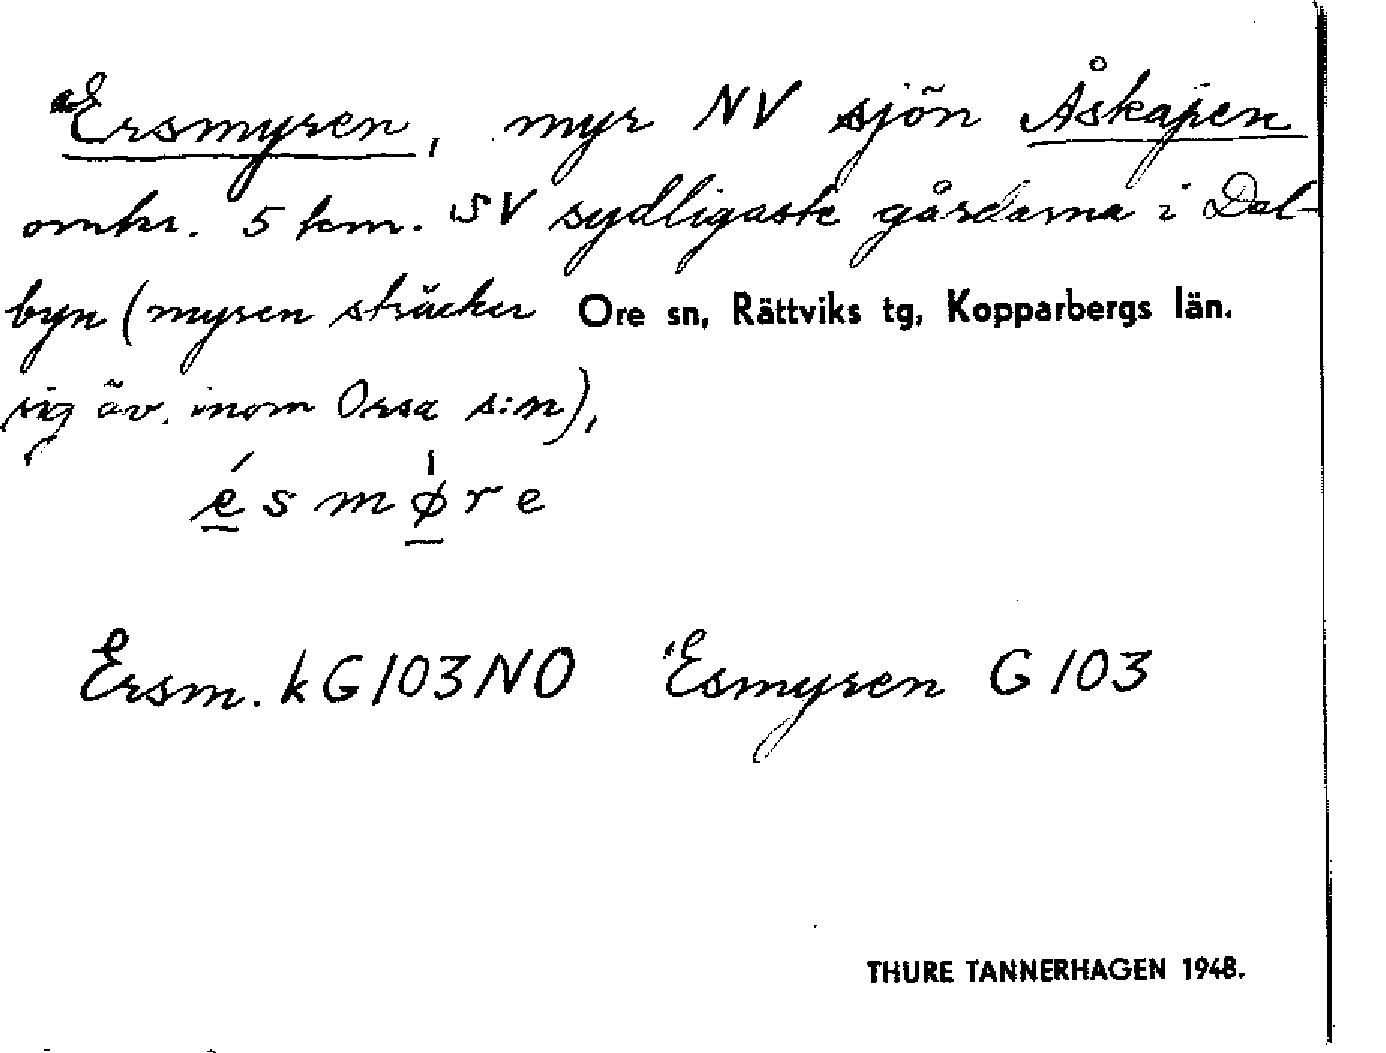 Ersmyren, myr NV sjön Åskapen
omkr. 5 km. SV sydligaste gårdarna i Dal-
byn (myren sträcker Ore sn, Rättviks tg, Kopparbergs län.
sig äv. inom Orsa s:n),
é s m ø r e
Ersm. k G103NO Esmyren G103
THURE TANNERHAGEN 1948.